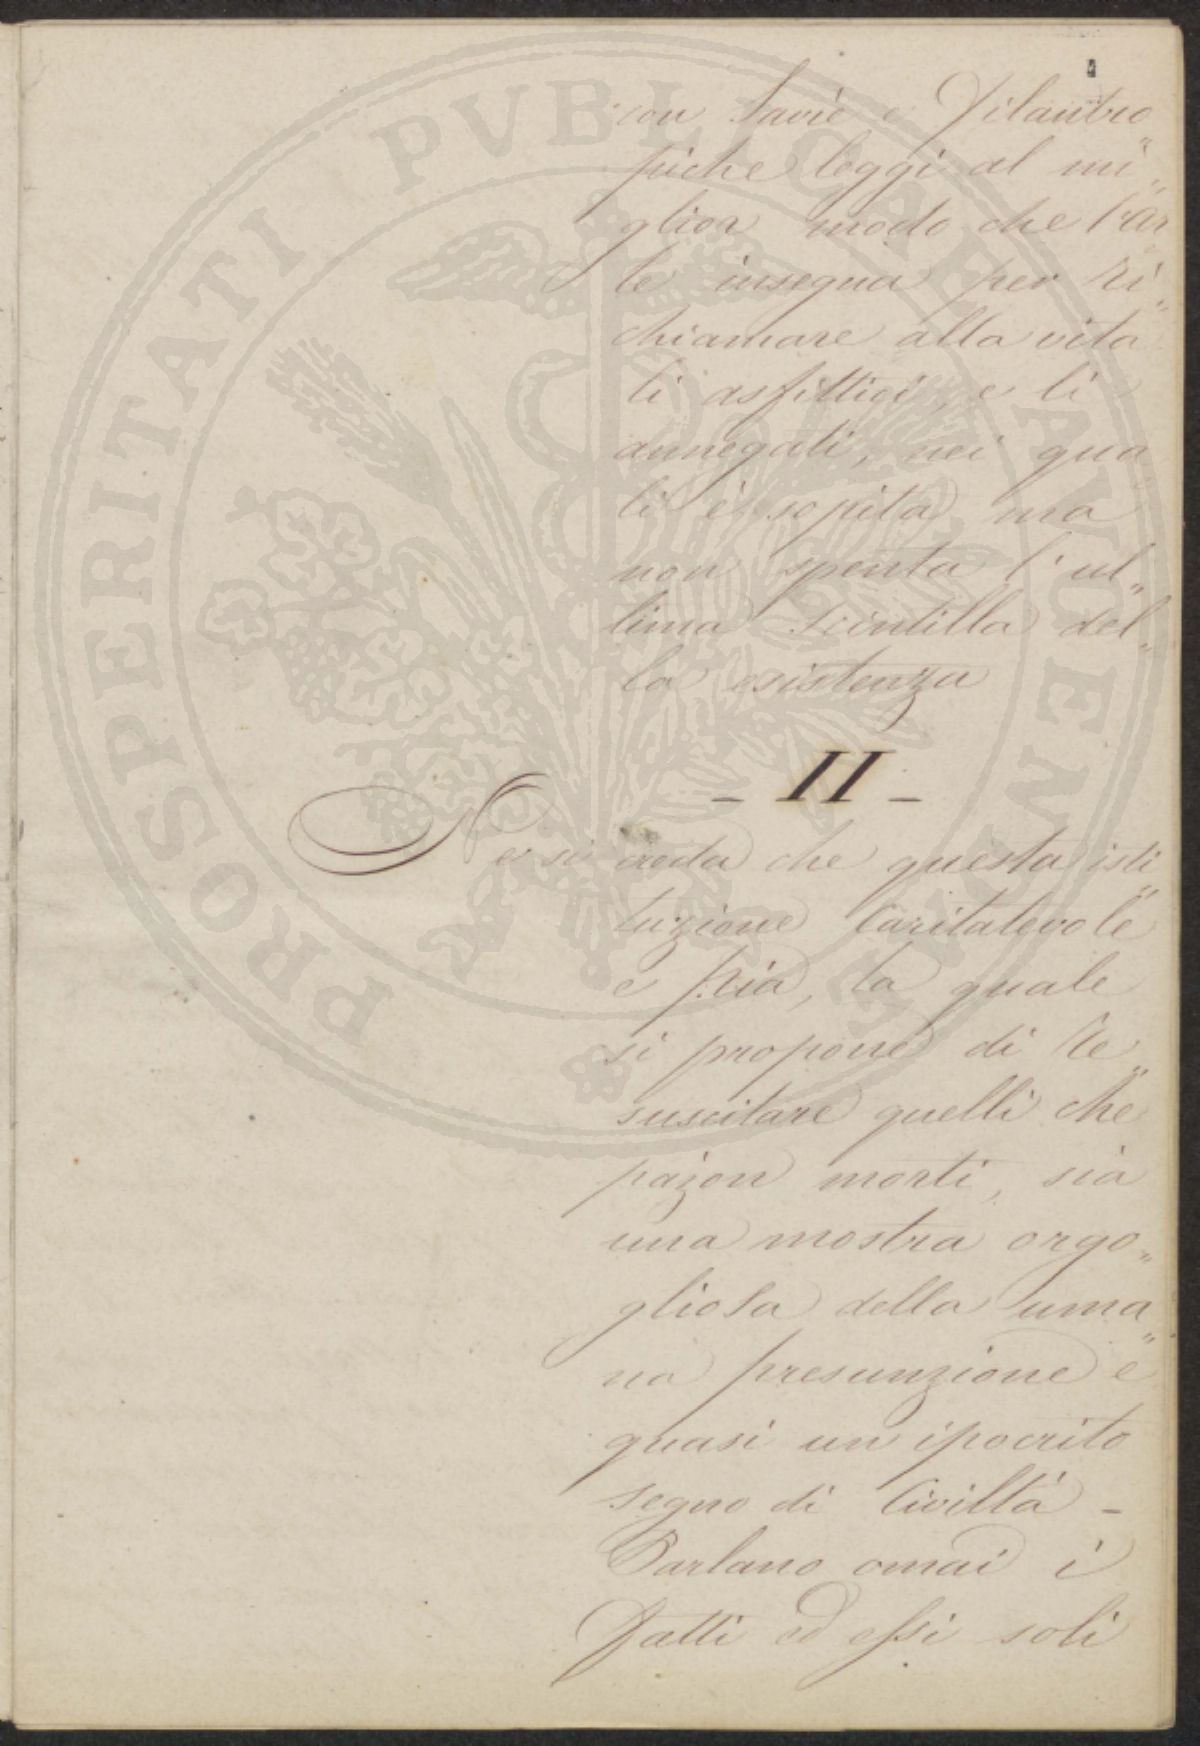 con Savie e Filantro
piche leggi al mi„
glior modo che l'Ar„
te insegna per ri„
chiamare alla vita
li asfittici, e li
annegati, nei qua„
li è sopita ma
non spenta l'ul„
tima scintilla del„
la esistenza
- II -
Ne si creda che questa isti„
tuzione Caritatevole
e pia, la quale
si propone di re„
suscitare quelli che
pajon morti, sia
una mostra orgo„
gliosa della uma„
na presunzione e
quasi un ipocrito
segno di Civiltà -
Parlano omai i
Fatti ed essi soli
PROSPERITATI PVBLICAE AVGENDAE